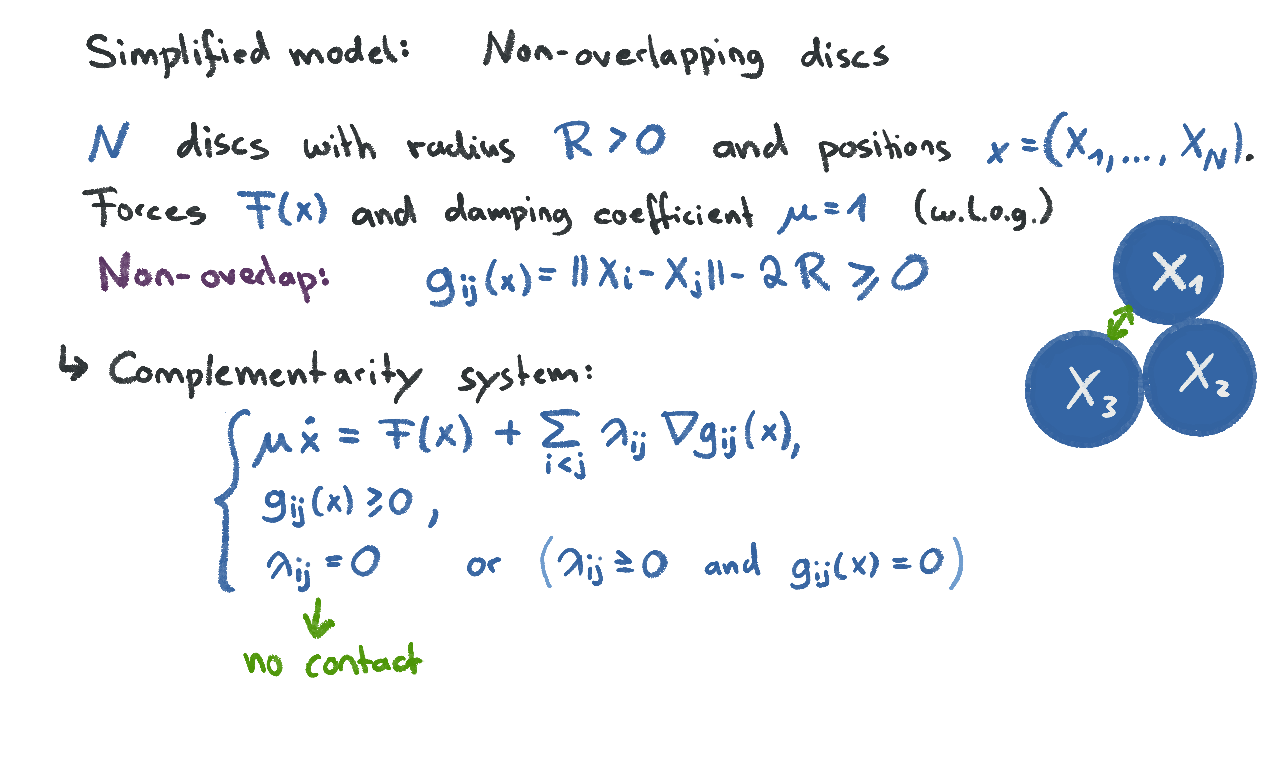 Simplified model: Non-overlapping discs
N discs with radius R > 0 and positions x = (X₁, ..., X_N).
Forces F(x) and damping coefficient μ = 1 (w.l.o.g.)
Non-overlap: g_ij(x) = ||X_i - X_j|| - 2R ⩾ 0
X₁
X₂
X₃
↳ Complementarity system:
μẋ = F(x) + ∑_{i<j} λ_ij ∇g_ij(x),
g_ij(x) ⩾ 0,
λ_ij = 0 or (λ_ij ≥ 0 and g_ij(x) = 0)
no contact